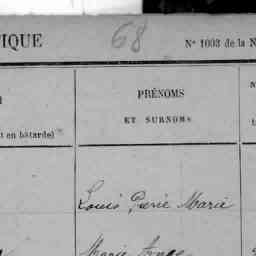 TIQUE 68 N° 1003 de la N
PRÉNOMS
ET SURNOMS
t en bâtarde)
Louis Pierre Marie
Marie Ange